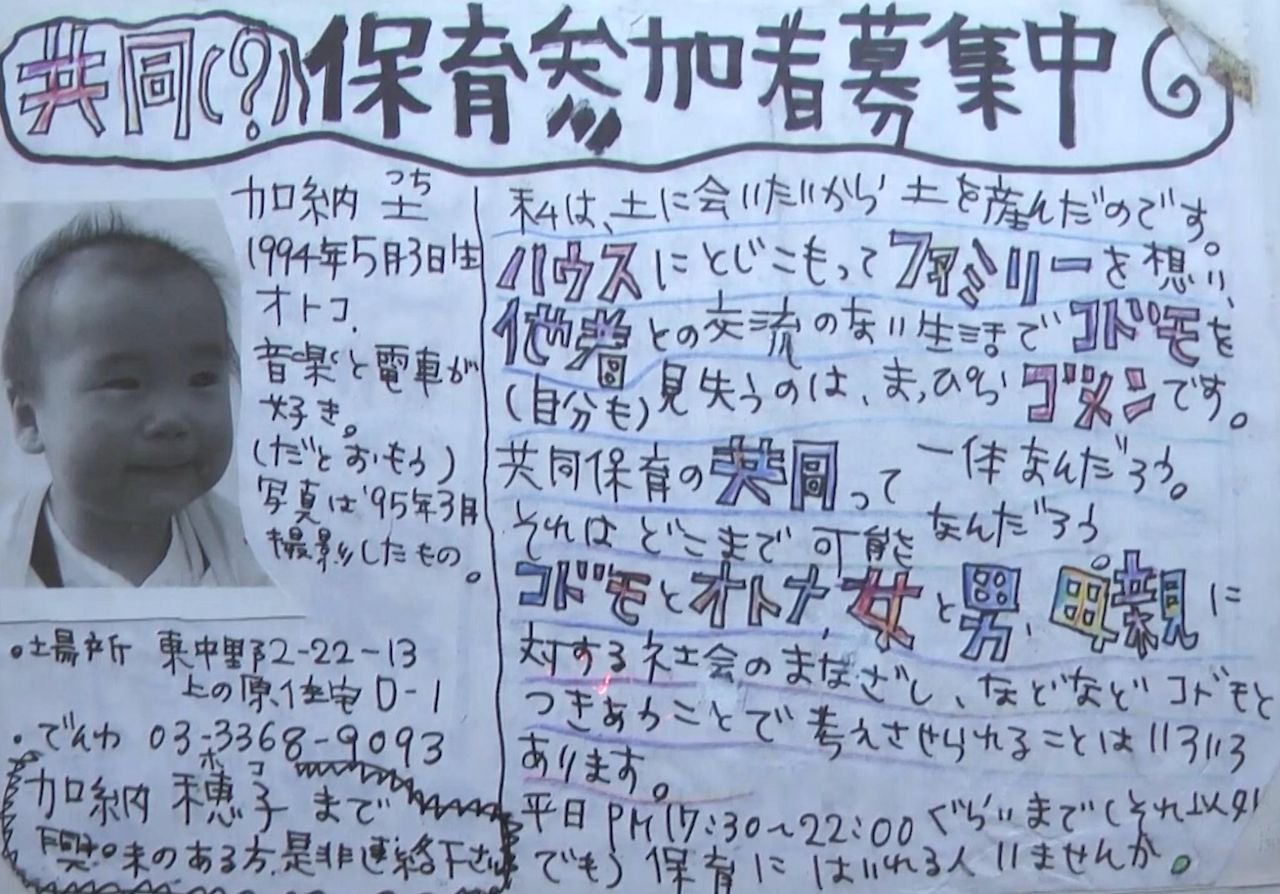 共同(?)保育参加者募集中
加納 土
つち
1994年5月3日生
オトコ.
音楽と電車が
好き。
(だとおもう)
写真は'95年3月
撮影したもの。
・場所 東中野2-22-13
上の原住宅D-1
・でんわ 03-3368-9093
ホ コ
加納 穂子 まで
興味のある方、是非連絡下さい
私は、土に会いたいから 土を産んだのです。
ハウスにとじこもってファミリーを想い、
他者との交流のない生活でコドモを
(自分も)見失うのは、まっぴらゴメンです。
共同保育の共同って 一体なんだろう。
それはどこまで可能なんだろう。
コドモとオトナ、女と男、母親に
対する社会のまなざし、などなどコドモと
つきあうことで考えさせられることはいろいろ
あります。
平日PM17:30~22:00ぐらいまで(それ以外
でも)保育にはいれる人いませんか。